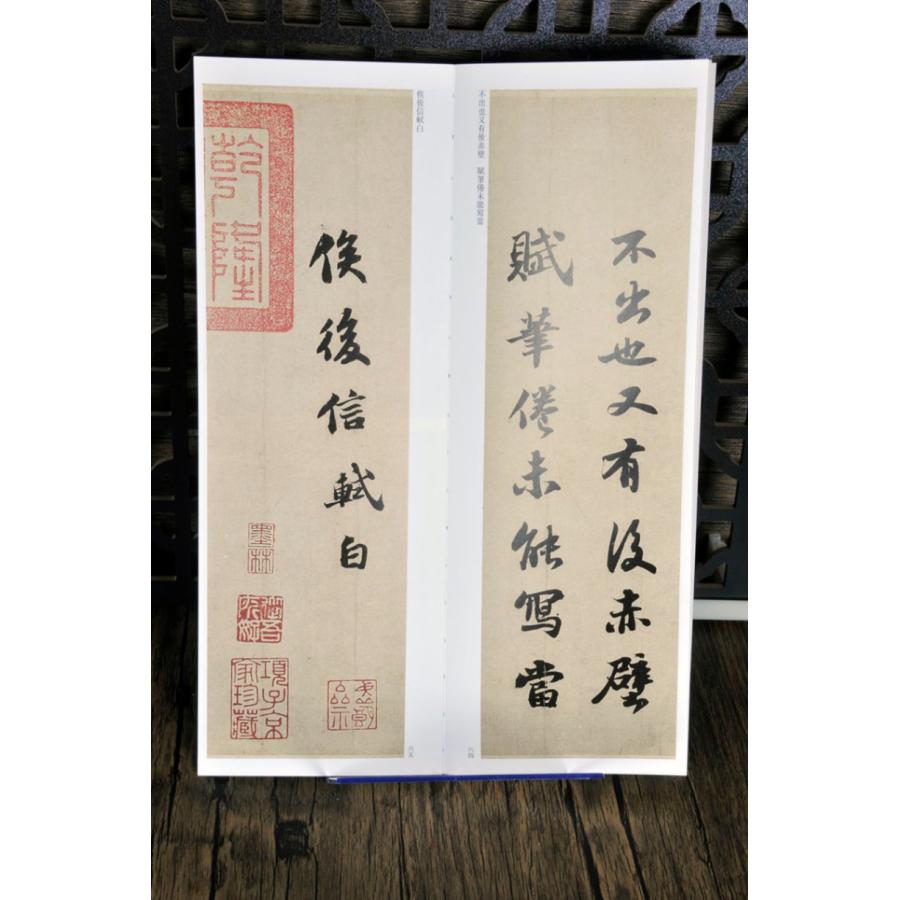 不出也又有後赤壁 賦筆倦未能寫當
不出也又有後赤壁
賦筆倦未能寫當
六四
俟後信軾白
俟後信軾白
六五
乾隆
墨林
項子京家珍藏